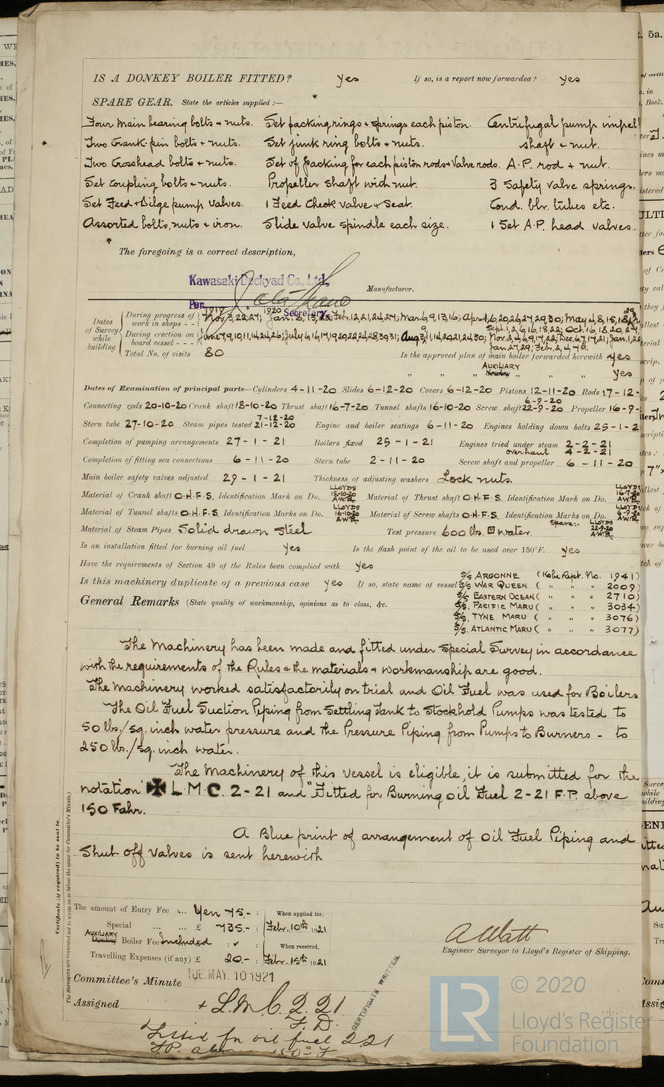 IS A DONKEY BOILER FITTED? Yes If so, is a report now forwarded? Yes
SPARE GEAR. State the articles supplied :—
Four Main bearing bolts & nuts. Set packing rings & springs each piston. Centrifugal pump impell
Two Crank pin bolts & nuts. Set junk ring bolts & nuts. shaft & nut.
Two Crosshead bolts & nuts. Set of packing for each piston rods & valve rods. A.P. rod & nut.
Set coupling bolts & nuts. Propeller shaft with nut. 3 Safety valve springs.
Set Feed & Bilge pump valves. 1 Feed Check valve & seat. Cond. blr. tubes etc.
Assorted bolts, nuts & iron. Slide valve spindle each size. 1 Set A.P. head valves.
The foregoing is a correct description,
Kawasaki Dockyard Co., Ltd., Manufacturer.
Per
Secretary
Dates of Survey while building
During progress of work in shops - -
During erection on board vessel - - -
Total No. of visits 80
Is the approved plan of main boiler forwarded herewith yes
AUXILIARY
" " " yes
Dates of Examination of principal parts—Cylinders 4-11-20 Slides 6-12-20 Covers 6-12-20 Pistons 12-11-20 Rods 17-12-
Connecting rods 20-10-20 Crank shaft 18-10-20 Thrust shaft 16-7-20 Tunnel shafts 16-10-20 Screw shaft 6-9-20 22-9-20 Propeller 16-9-
Stern tube 27-10-20 Steam pipes tested 7-12-20 21-12-20 Engine and boiler seatings 6-11-20 Engines holding down bolts 25-1-2
Completion of pumping arrangements 27-1-21 Boilers fixed 25-1-21 Engines tried under steam 2-2-21
overhaul 4-2-21
Completion of fitting sea connections 6-11-20 Stern tube 2-11-20 Screw shaft and propeller 6-11-20
Main boiler safety valves adjusted 29-1-21 Thickness of adjusting washers Lock nuts.
Material of Crank shaft O.H.F.S. Identification Mark on Do. LLOYDS 18-10-20 A.W.R. Material of Thrust shaft O.H.F.S. Identification Mark on Do. LLOYDS
Material of Tunnel shafts O.H.F.S. Identification Marks on Do. LLOYDS 16-10-20 A.W.R. Material of Screw shafts O.H.F.S. Identification Marks on Do. LLOYDS
Spare:- LLOYDS 22-9-20
Material of Steam Pipes Solid drawn Steel Test pressure 600 lbs. water
Is an installation fitted for burning oil fuel yes Is the flash point of the oil to be used over 150°F. yes
Have the requirements of Section 49 of the Rules been complied with yes
Is this machinery duplicate of a previous case yes If so, state name of vessel S/S ARGONNE (Kobe Rept. No. 1941)
S/S WAR QUEEN ( " " " 2009)
S/S EASTERN OCEAN ( " " " 2710)
General Remarks (State quality of workmanship, opinions as to class, &c.
S/S. PACIFIC MARU ( " " " 3034)
S/S. TYNE MARU ( " " " 3076)
S/S. ATLANTIC MARU ( " " " 3077)
The Machinery has been made and fitted under Special Survey in accordance
with the requirements of the Rules & the materials & workmanship are good.
The Machinery worked satisfactorily on trial and Oil Fuel was used for Boilers
The Oil Fuel Suction Piping from Settling Tank to Stockhold Pumps was tested to
50 lbs./sq. inch water pressure and the Pressure Piping from Pumps to Burners - to
250 lbs./sq. inch water.
The Machinery of this vessel is eligible, it is submitted for the
notation ✠ L.M.C. 2-21 and "Fitted for Burning Oil Fuel 2-21 F.P. above
150 Fahr.
A Blue print of arrangement of Oil Fuel Piping and
Shut-off valves is sent herewith
The amount of Entry Fee ... Yen 45.- : When applied for,
Special ... ... £ 735.- : Febr. 10th 1921
AUXILIARY Boiler Fee included When received,
Travelling Expenses (if any) £ 20.- : Febr. 15th 1921
A Watt
Engineer Surveyor to Lloyd's Register of Shipping.
Committee's Minute TUE. MAY. 10 1921
Assigned + L.M.C. 2.21
F.D.
Fitted for oil fuel 2.21
F.P. above 150°F
CERTIFICATE WRITTEN
LR
© 2020
Lloyd's Register
Foundation